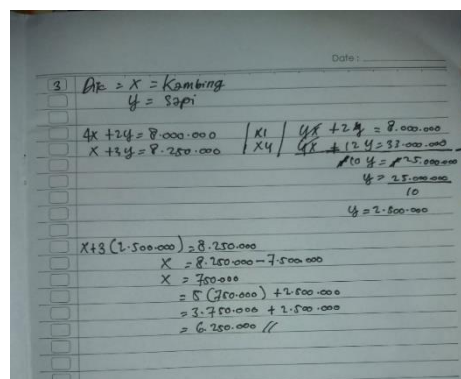 Date:
3 Dik = x = Kambing
y = Sapi
4x + 2y = 8.000.000 | x1 | 4x + 2y = 8.000.000
x + 3y = 8.250.000 | x4 | 4x + 12y = 33.000.000
-10y = -25.000.000
y = 25.000.000
10
y = 2.500.000
x + 3 (2.500.000) = 8.250.000
x = 8.250.000 - 7.500.000
x = 750.000
= 5 (750.000) + 2.500.000
= 3.750.000 + 2.500.000
= 6.250.000 //